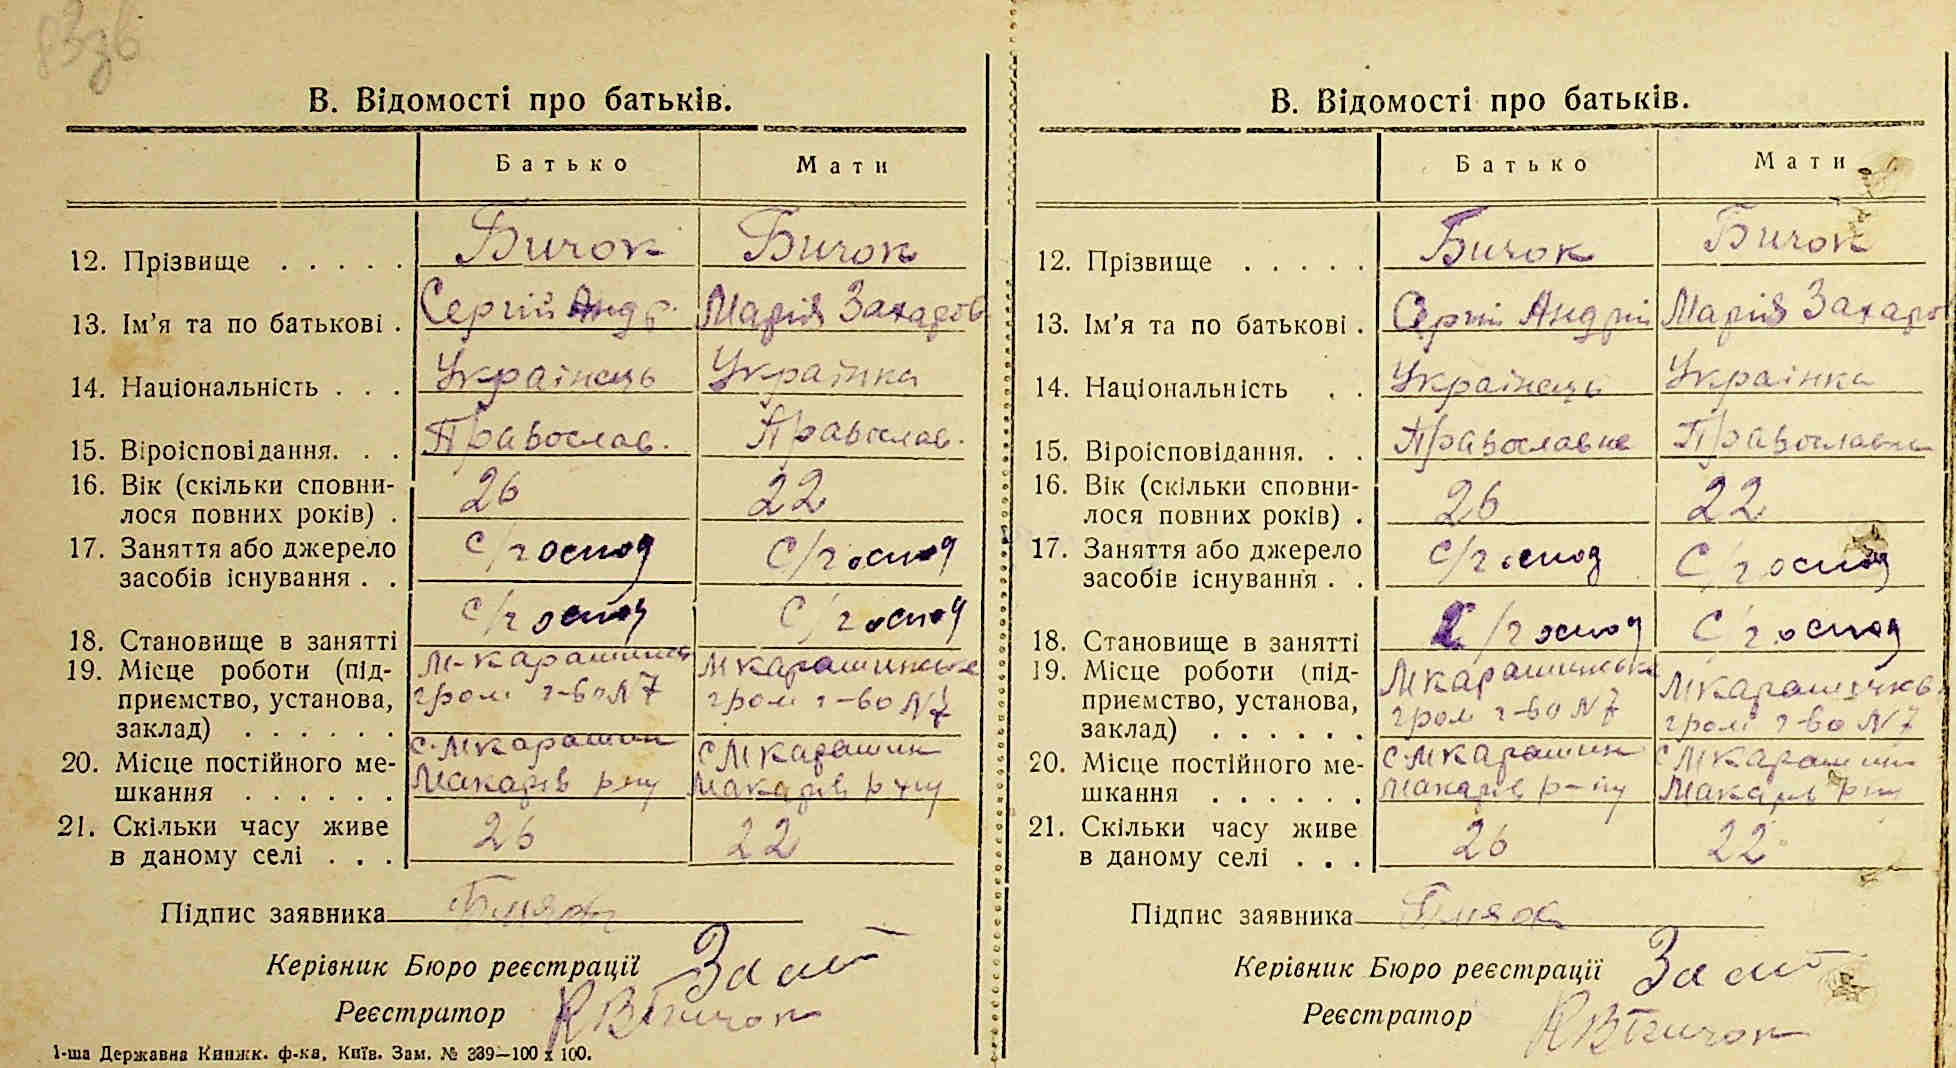 В. Відомості про батьків.
Батько Мати
12. Прізвище . . . . . Бичок Бичок
13. Ім'я та по батькові . Сергій Андр. Марія Захаров
14. Національність . . . Українець Українка
15. Віроісповідання. . . Православ. Православ.
16. Вік (скільки сповни-
лося повних років) . 26 22
17. Заняття або джерело
засобів існування . . С/господ С/господ
18. Становище в занятті С/господ С/господ
19. Місце роботи (під-
приємство, установа,
заклад) . . . . . .
М-карашинськ Мкарашинське
гром г-во №7 гром г-во №7
20. Місце постійного ме-
шкання . . . . . .
с. Мкарашин с Мкарашин
Макарів р-ну Макарів р-ну
21. Скільки часу живе
в даному селі . . . 26 22
Підпис заявника
Керівник Бюро реєстрації
Реєстратор КВБичок
1-ша Державна Книжк. ф-ка, Київ. Зам. № 339—100 x 100.
В. Відомості про батьків.
Батько Мати
12. Прізвище . . . . . Бичок Бичок
13. Ім'я та по батькові . Сергій Андрій Марія Захаров
14. Національність . . Українець Українка
15. Віроісповідання. . . Православне Православне
16. Вік (скільки сповни-
лося повних років) . 26 22
17. Заняття або джерело
засобів існування . . С/господ С/господ
18. Становище в занятті С/господ С/господ
19. Місце роботи (під-
приємство, установа,
заклад) . . . . . .
Мкарашинське Мкарашинськ
гром г-во №7 гром г-во №7
20. Місце постійного ме-
шкання . . . . . .
с Мкарашин с Мкарашин
Макарів р-ну Макарів р-ну
21. Скільки часу живе
в даному селі . . . 26 22
Підпис заявника
Керівник Бюро реєстрації
Реєстратор КВБичок